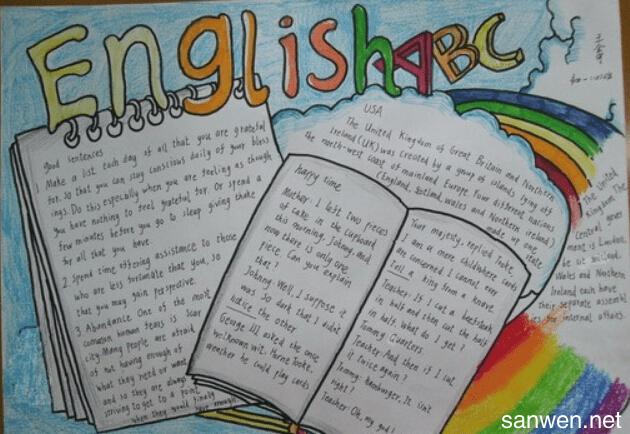 English ABC
good sentences
1. Make a list each day of all that you are grateful
for. So that you can stay conscious daily of your bless
ings. Do this especially when you are feeling as though
you have nothing to feel grateful for. Or spend a
few minutes before you go to sleep giving thanks
for all that you have.
2. Spend time offering assistance to those
who are less fortunate that you, so
that you may gain perspective.
3. Abundance One of the most
common human fears is scar
city. Many people are afraid
of not having enough of
what they need or want
and so they are always
striving to get to a point
when they would finally
have enough
happy time
Mother: I left two pieces
of cake in the cupboard
this morning, Johnny, And
now there is only one
piece. Can you explain
that?
Johnny: Well, I suppose it
was so dark that I didn't
notice the other
George III asked the once
well known wit. Horne Tooke,
weather he could play cards
Your majesty, replied Tooke,
I am a mere child where cards
are concerned I cannot even
tell a king from a knave
Teacher: If I cut a beefsteak
in half and then cut the half
in half. What do I get?
Tommy: Quarters.
Teacher: And then if I cut
it twice again?
Tommy: Hamburger, It isn't
right?
Teacher: Oh, my god!
USA
The United Kingdom of Great Britain and Northern
Ireland (UK) was created by a group of islands lying off
the north-west coast of mainland Europe. Four different nations
(England, Scotland, wales and Northern ireland)
made up one
state
The United
Kingdom The
Central gover
ment is London,
Wales and Northern
Ireland each have
their separate assembl
ies for internal affairs.
sanwen.net